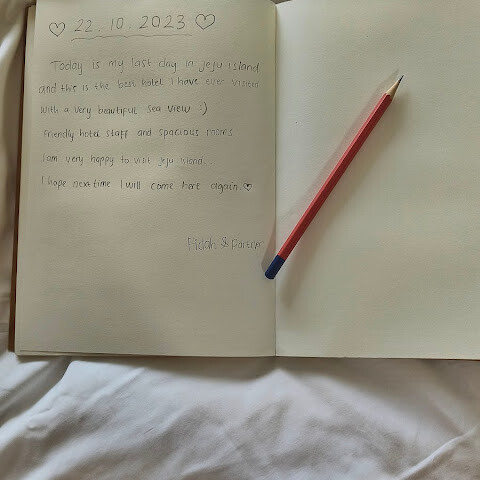 ♡ 22.10.2023 ♡
Today is my last day in jeju island
and this is the best hotel I have ever visited
with a very beautiful sea view :)
Friendly hotel staff and spacious rooms
I am very happy to visit jeju island..
I hope next time I will come here again.♡
& Partner